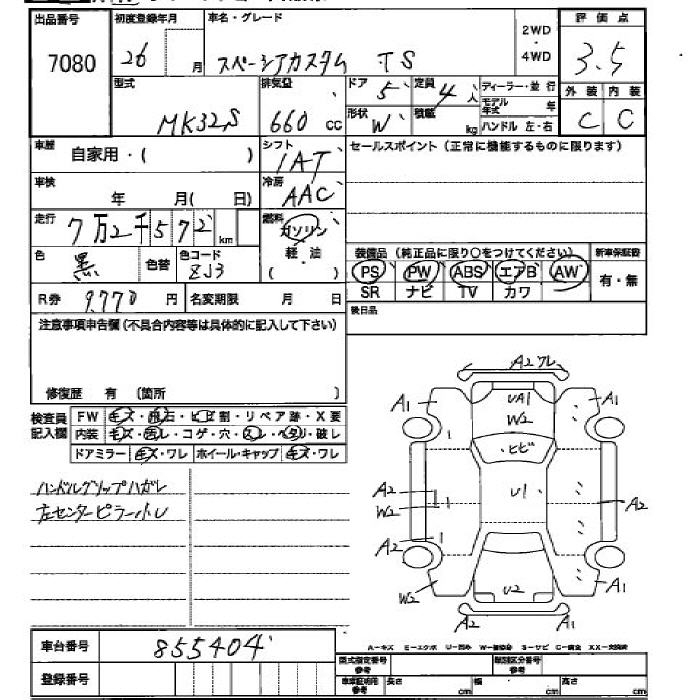 出品番号 初度登録年月 車名・グレード 評価点
7080 26 月 スペーシアカスタム TS 2WD・4WD 3.5
型式 排気量 ドア 定員 ディーラー・並行 外装 内装
MK32S 660 cc 5 4人 モデル年式 年 C C
形状 W 積載 kg ハンドル 左・右
車歴 自家用・( ) シフト IAT セールスポイント(正常に機能するものに限ります)
車検 年 月( 日) 冷房 AAC
走行 7万2千572 km 燃料 ガソリン 軽油 ( )
装備品(純正品に限り○をつけてください) 新車保証書
色 黒 色替 色コード ZJ3 PS PW ABS エアB AW 有・無
SR ナビ TV カワ
R券 9,770 円 名変期限 月 日 後日品
注意事項申告欄(不具合内容等は具体的に記入して下さい)
修復歴 有 〔箇所 〕
検査員記入欄 FW キズ・飛石・ヒビ割・リペア跡・X要
内装 キズ・汚レ・コゲ・穴・スレ・ヘタリ・破レ
ドアミラー キズ・ワレ ホイール・キャップ キズ・ワレ
ハンドルグリップハガレ
左センターピラー小U
A2ワレ
A1 UA1 A1
W2
ヒビ
A2 U1 A2
W2
A2
W2 U2 A1
A2 A1
A-キズ E-エクボ U-凹み W-補修跡 S-サビ C-腐食 XX-交換済
車台番号 855404
登録番号
型式指定番号 参考 類別区分番号 参考
車庫証明用 参考 長さ cm 幅 cm 高さ cm